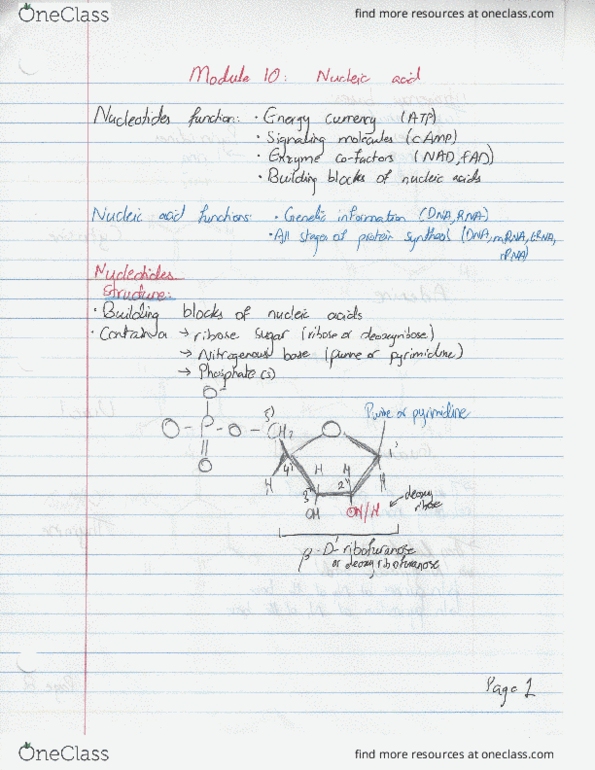 OneClass
find more resources at oneclass.com
Module 10: Nucleic acid
Nucleotides function: • Energy currency (ATP)
• Signaling molecules (cAMP)
• Enzyme co-factors (NAD, FAD)
• Building blocks of nucleic acids
Nucleic acid functions: • Genetic information (DNA, RNA)
• All stages of protein synthesis (DNA, mRNA, tRNA,
rRNA)
Nucleotides
Structure:
• Building blocks of nucleic acids
• Contain a → ribose sugar (ribose or deoxyribose)
→ Nitrogenous base (purine or pyrimidine)
→ Phosphate(s)
O⁻
O - P - O - CH2
5'
O
O
Purine or pyrimidine
1'
4'
H H
H
H
3' 2'
OH
OH/H
deoxy
ribose
β-D-ribofuranose
or deoxyribofuranose
Page 1
OneClass
find more resources at oneclass.com